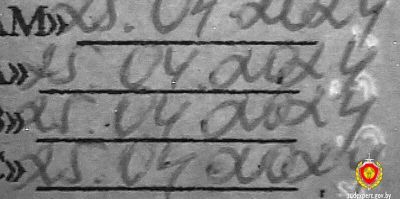 АМ» 25.04.2024
А» 25 04.2024
В» 25.04.2024
С» 25 04 2024
sudexpert.gov.by